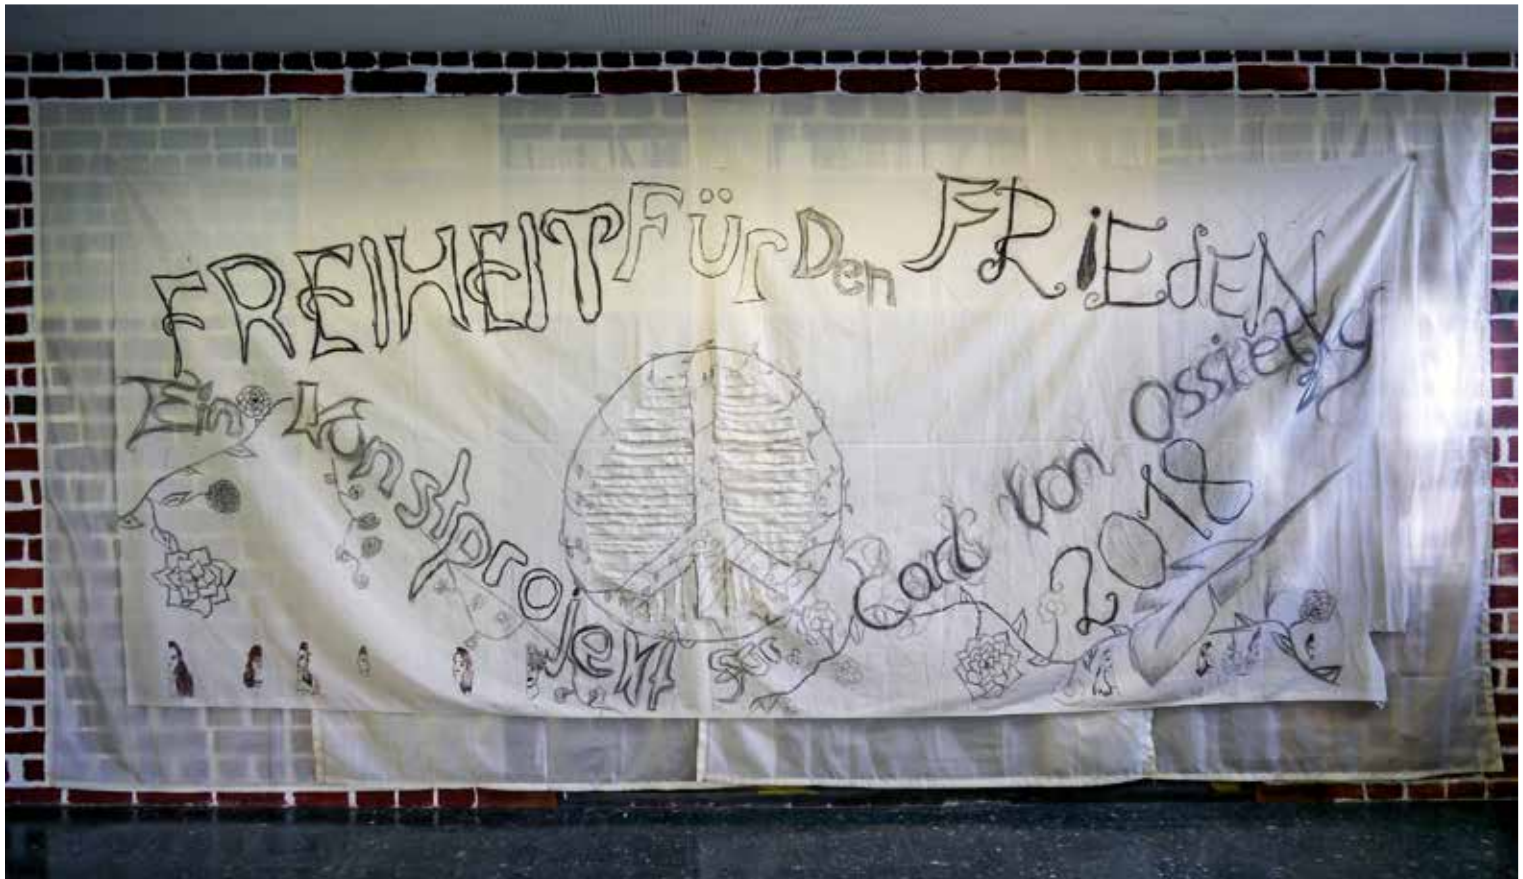 FREIHEIT FÜr Den FRiEdEN
Ein kunstprojekt zu Carl von Ossietzky
2018